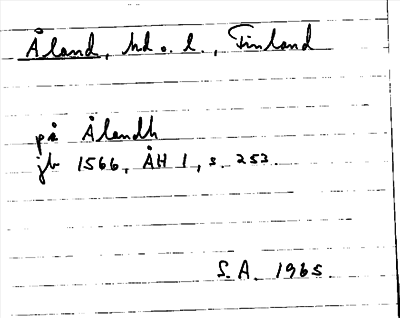 Åland, hd o. l., Finland
på Ålandh
jb 1566, ÅH 1, s. 253.
S.A. 1965.